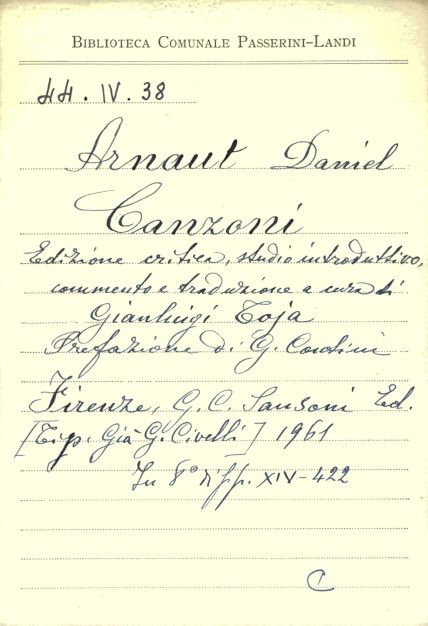 BIBLIOTECA COMUNALE PASSERINI-LANDI
44. IV. 38
Arnaut Daniel
Canzoni
Edizione critica, studio introduttivo,
commento e traduzione a cura di
Gianluigi Toja
Prefazione di G. Contini
Firenze, G. C. Sansoni Ed.
[Tip. Già G. Civelli] 1961
In 8° di pp. XIV-422
C